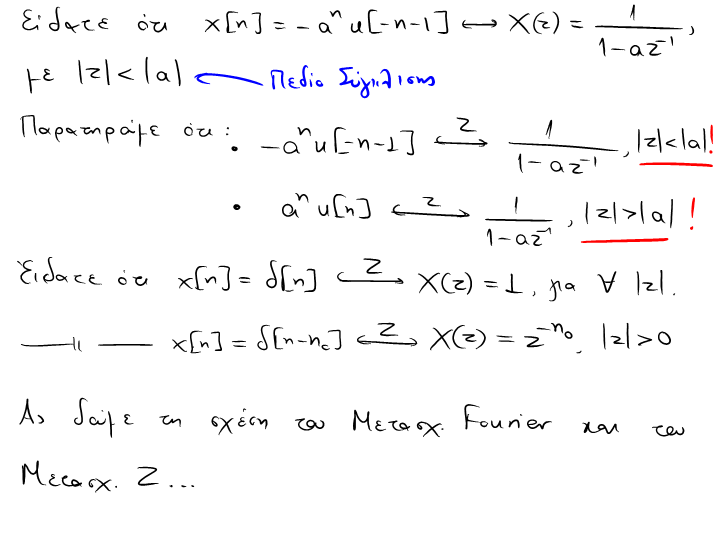 Είδατε ότι x[n] = -aⁿ u[-n-1] ⟷ X(z) = 1/(1-az⁻¹),
με |z| < |a| ← Πεδίο Σύγκλισης
Παρατηρούμε ότι:
• -aⁿ u[-n-1] ⟷ᶻ 1/(1-az⁻¹), |z|<|a| !
• aⁿ u[n] ⟷ᶻ 1/(1-az⁻¹), |z|>|a| !
Είδατε ότι x[n] = δ[n] ⟷ᶻ X(z) = 1, για ∀ |z|.
—〃— x[n] = δ[n-n₀] ⟷ᶻ X(z) = z^{-n₀}, |z|>0
Ας δούμε τη σχέση του Μετασχ. Fourier και του
Μετασχ. Z...